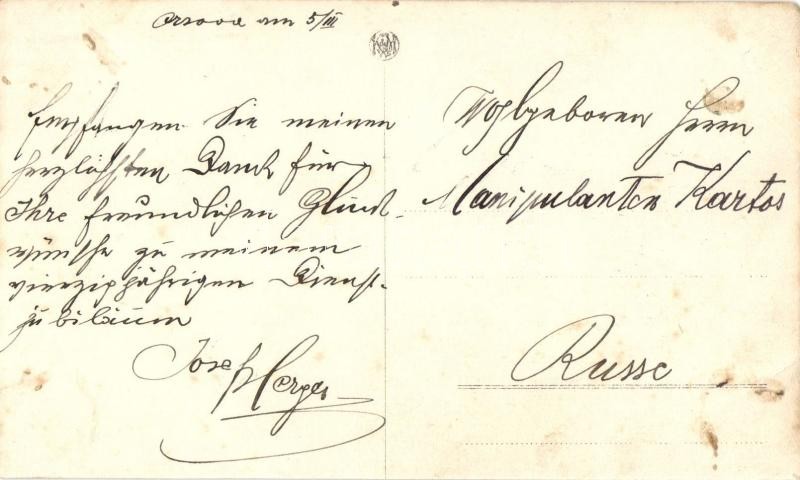 Orsova am 5/III
Empfangen Sie meinen
herzlichsten Dank für
Ihre freundlichen Glück-
wünsche zu meinem
vierzigjährigen Dienst-
jubiläum
Josef
Wohlgeboren Herrn
Manipulanten Kartos
Russe